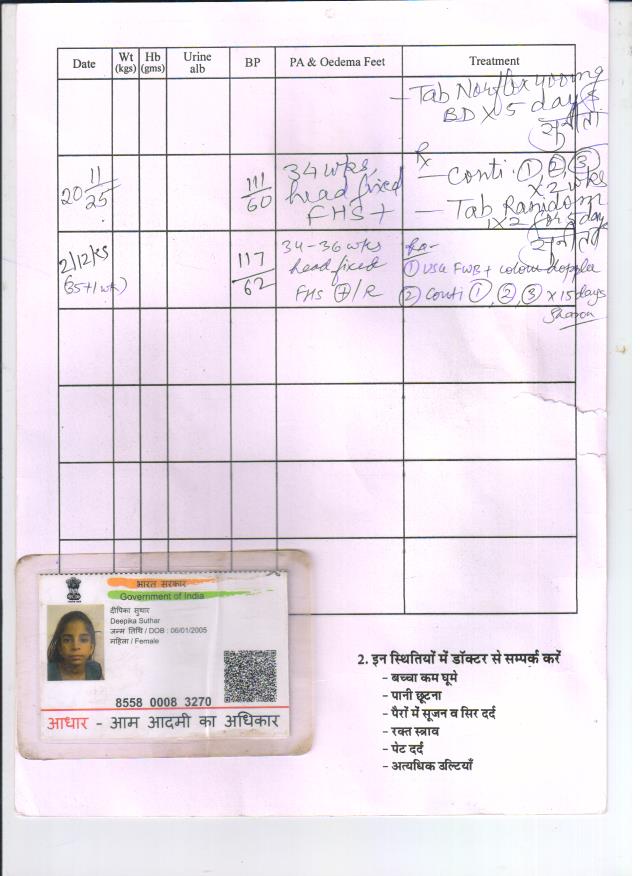 Date Wt (kgs) Hb (gms) Urine alb BP PA & Oedema Feet Treatment
- Tab Norflox 400mg
BD x 5 days
सुनीता
20 11/25 111/60 34 wks, head fixed FHS +
Rx
- Conti. ①, ②, ③
x 2 wks
- Tab
1x2 for 5 days
2/12/25
(35+1 wk)
117/62
34-36 wks
head fixed
FHS ⊕/R
① USG FWB + colour doppler
② Conti ①, ②, ③ x 15 days
भारत सरकार
Government of India
दीपिका सुथार
Deepika Suthar
जन्म तिथि / DOB : 06/01/2005
महिला / Female
8558 0008 3270
आधार - आम आदमी का अधिकार
2. इन स्थितियों में डॉक्टर से सम्पर्क करें
- बच्चा कम घूमे
- पानी छूटना
- पैरों में सूजन व सिर दर्द
- रक्त स्त्राव
- पेट दर्द
- अत्यधिक उल्टियाँ